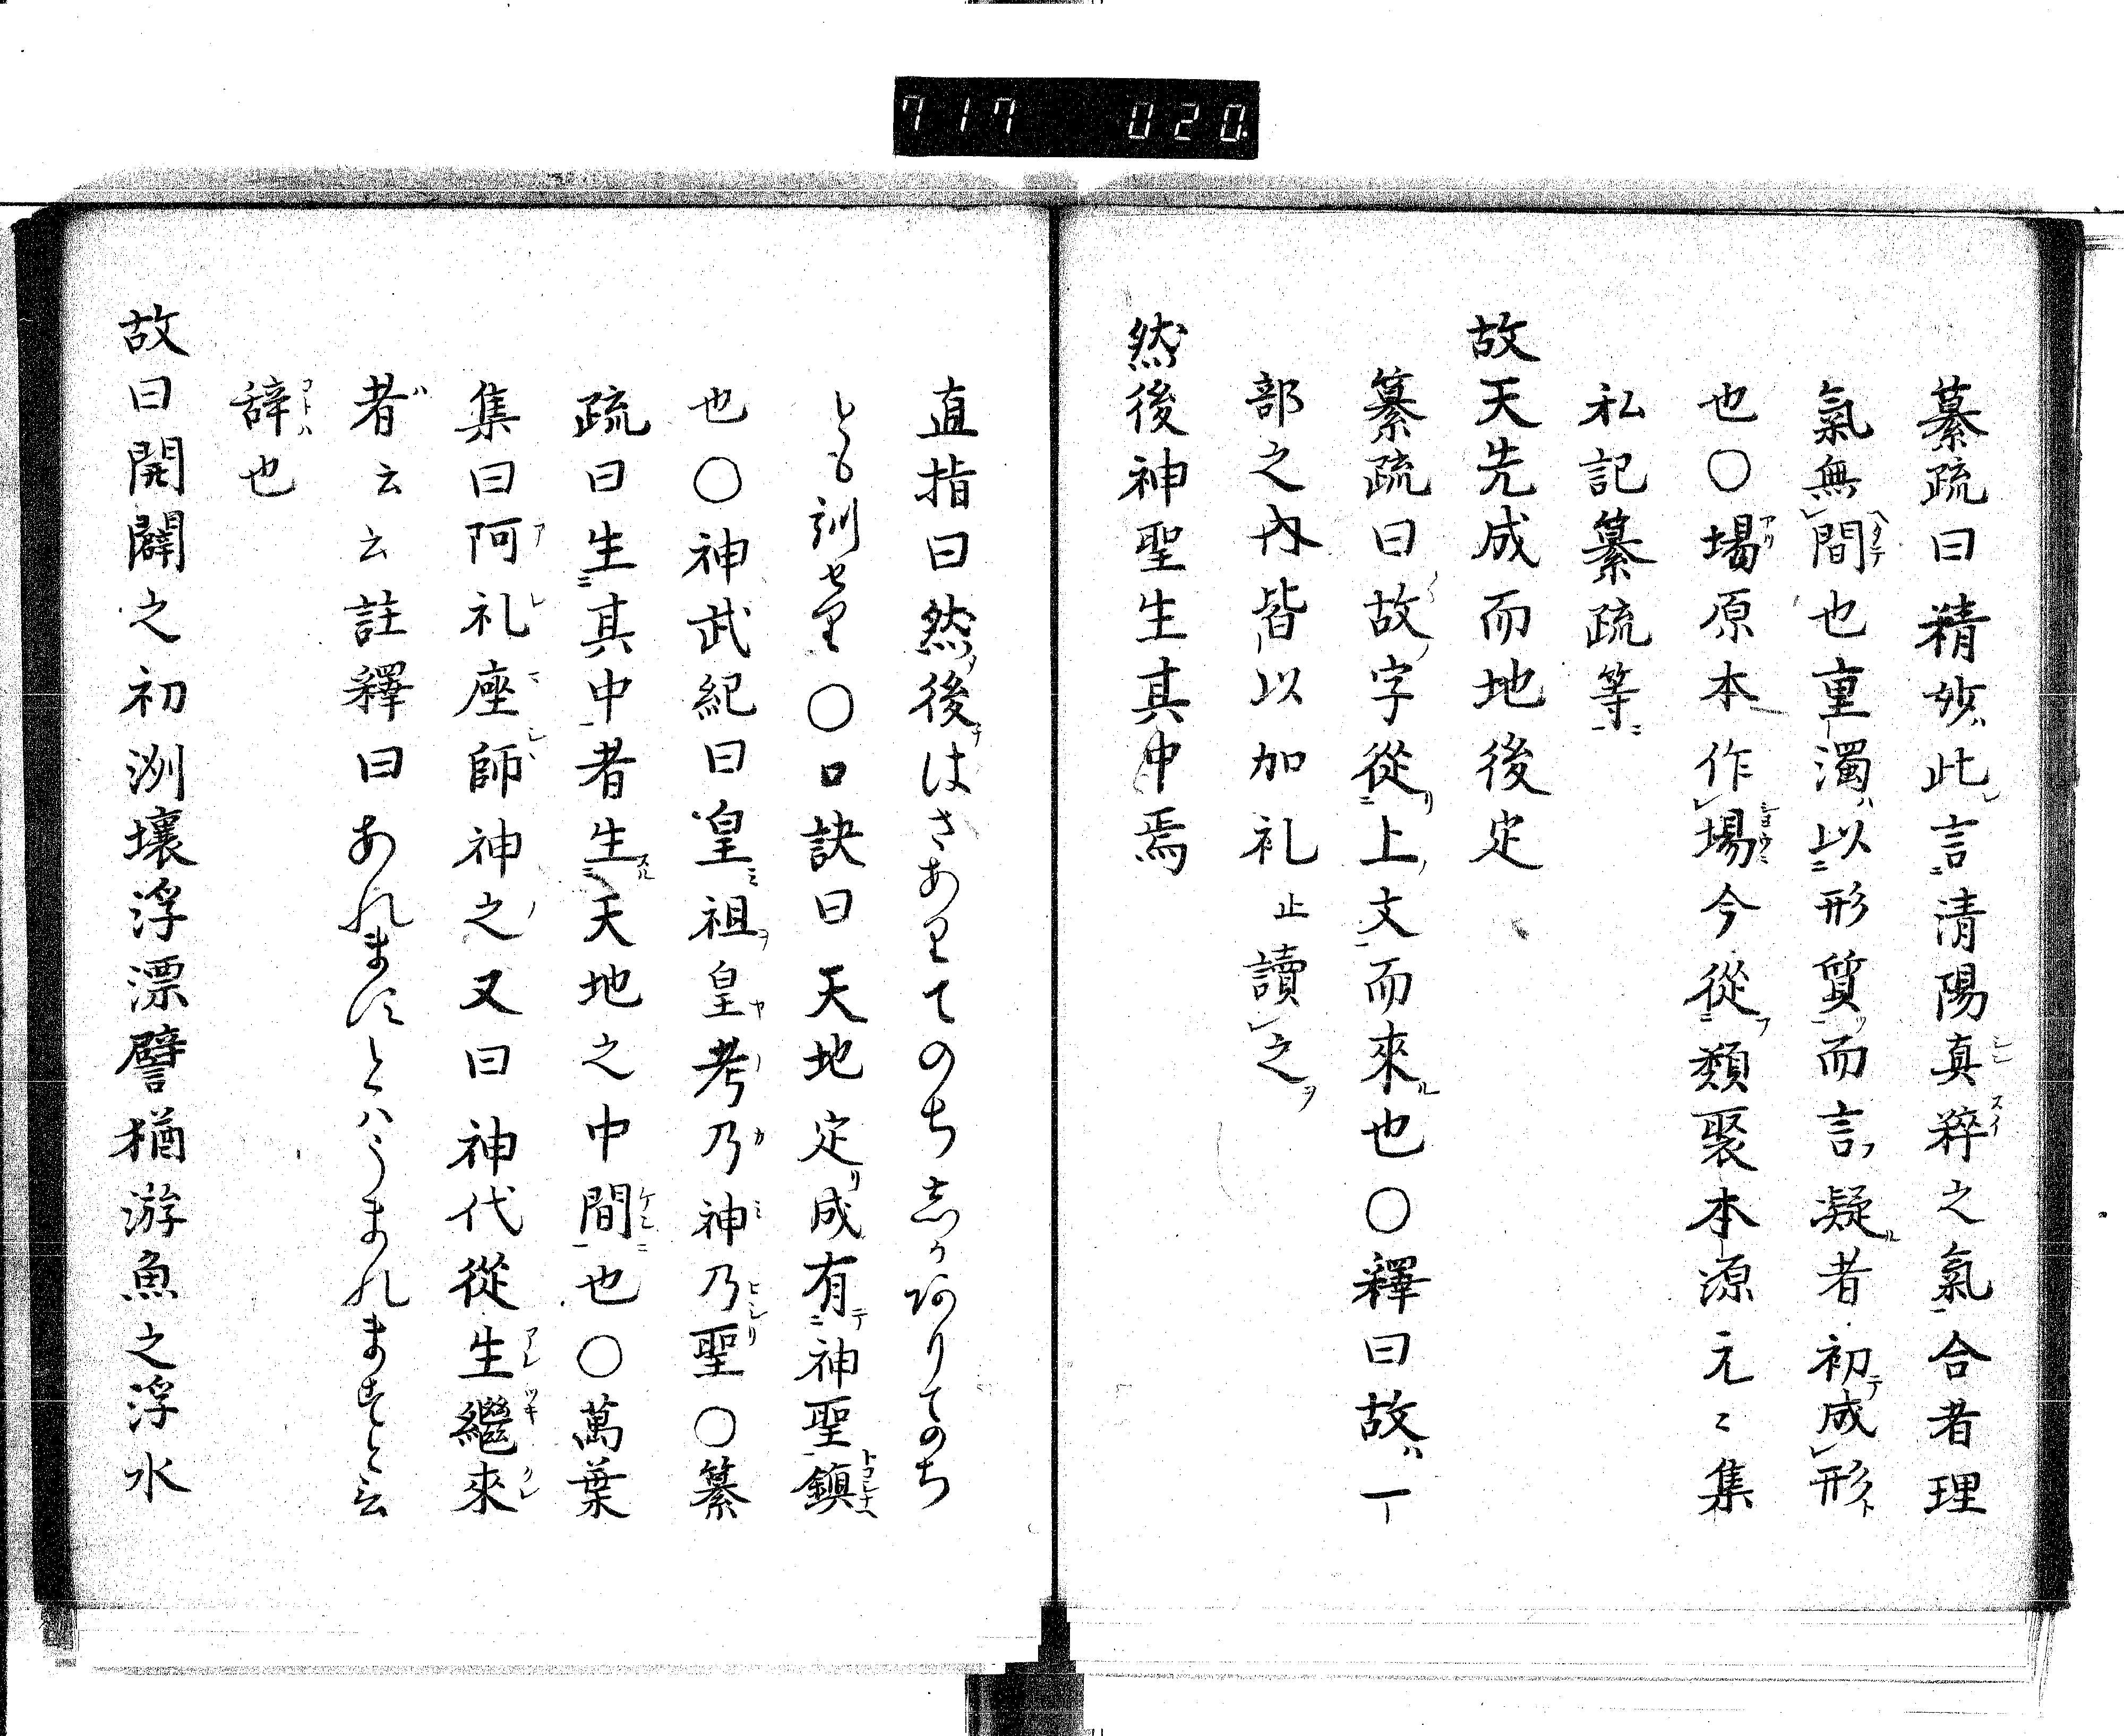 717 020
纂疏曰精妙此言清陽真粹之氣合者理
氣無間也重濁以形質而言凝者初成形
也○場原本作場今從類聚本源元〻集
私記纂疏等
故天先成而地後定
纂疏曰故字從上文而來也○釋曰故一
部之內皆以加礼止讀之
然後神聖生其中焉
直指曰然後はさありてのち志か阿りてのち
とも訓せり○口訣曰天地定成有神聖鎮
也○神武紀曰皇祖皇考乃神乃聖○纂
疏曰生其中者生天地之中間也○萬葉
集曰阿礼座師神之又曰神代從生繼來
者云云註釋曰あれますとハうまれますと云
辞也
故曰開闢之初洲壤浮漂譬猶游魚之浮水